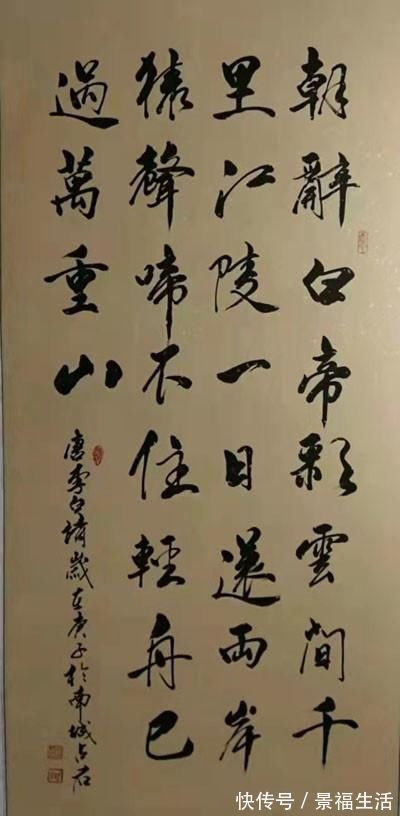 朝辭白帝彩雲間千
里江陵一日還兩岸
猿聲啼不住輕舟已
過萬重山
唐李白詩歲在庚子於南城占石
快传号／景福生活